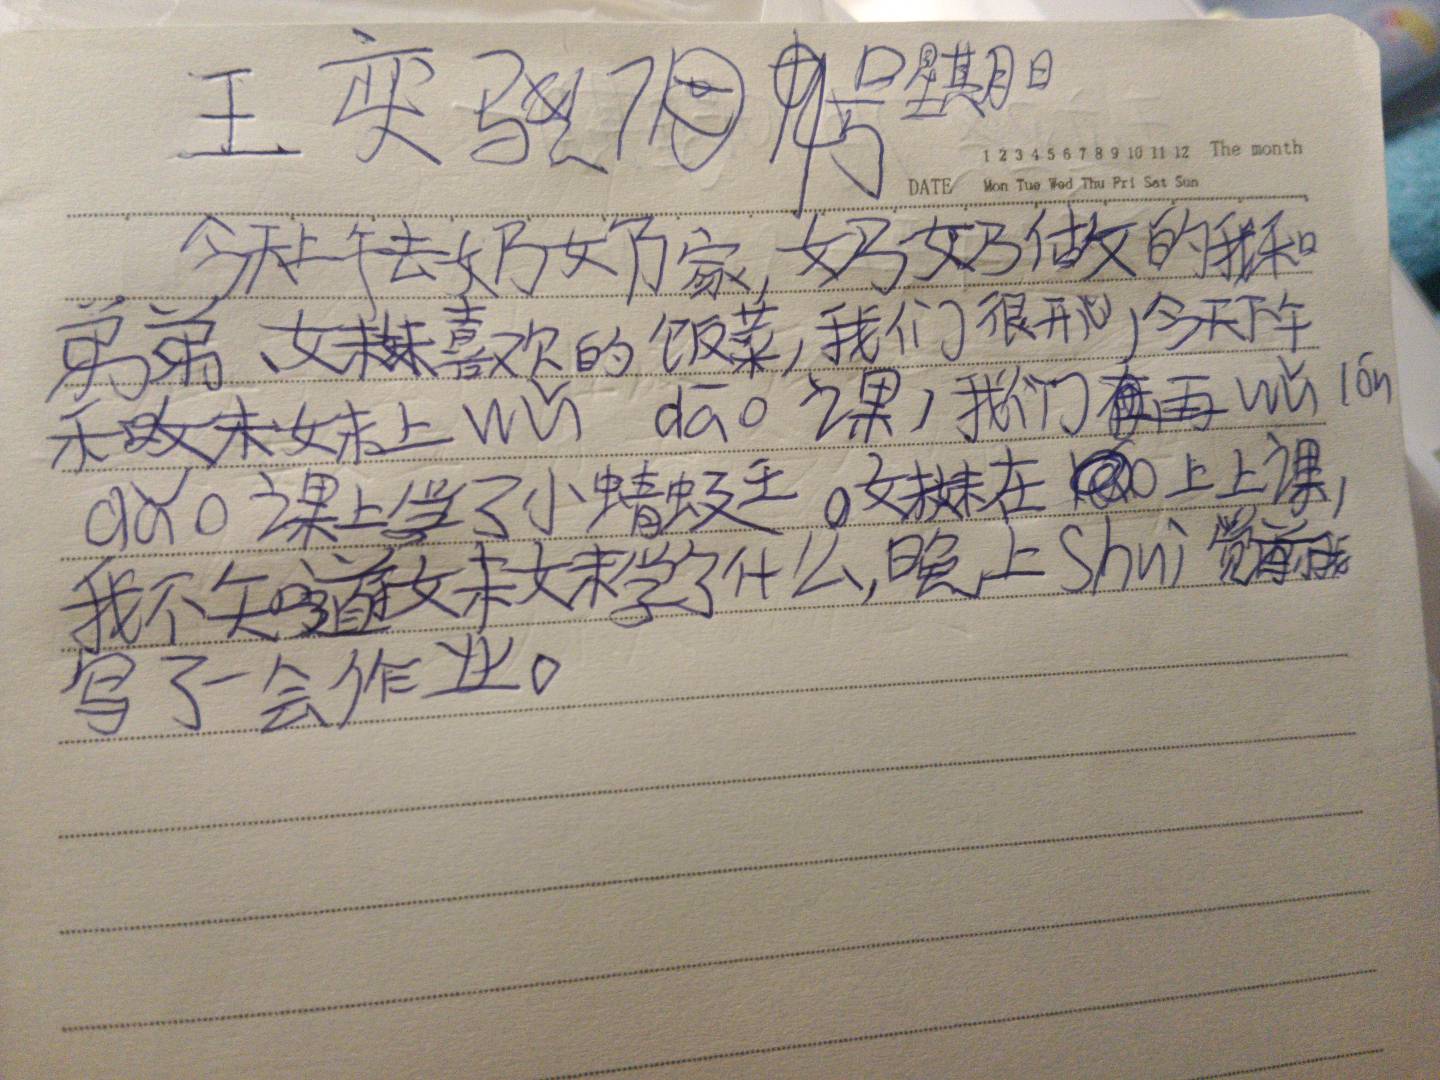 王奕骁7月14号星期日
1 2 3 4 5 6 7 8 9 10 11 12 The month
DATE Mon Tue Wed Thu Fri Sat Sun
今天上午去奶奶家,奶奶做的我和
弟弟、妹妹喜欢的饭菜,我们很开心,今天下午
禾妹妹上wǔ dāo 之课,我们再wǔ lón
dǎo 之课上学了小蜻蜓王。妹妹在上上课,
我不知道妹妹学了什么,晚上Shuì觉前我
写了一会作业。